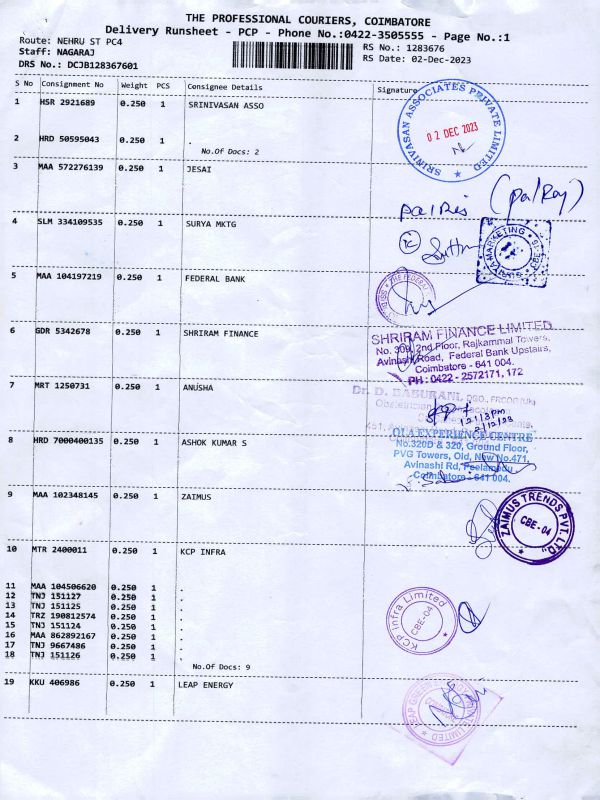 THE PROFESSIONAL COURIERS, COIMBATORE
Delivery Runsheet - PCP - Phone No.:0422-3505555 - Page No.:1
Route: NEHRU ST PC4
RS No.: 1283676
Staff: NAGARAJ
RS Date: 02-Dec-2023
DRS No.: DCJB128367601
S No Consignment No Weight PCS Consignee Details Signature
1 HSR 2921689 0.250 1 SRINIVASAN ASSO
SRINIVASAN ASSOCIATES PRIVATE LIMITED
02 DEC 2023
2 HRD 50595043 0.250 1 .
No.Of Docs: 2
3 MAA 572276139 0.250 1 JESAI
(Palraj)
4 SLM 334109535 0.250 1 SURYA MKTG
5 MAA 104197219 0.250 1 FEDERAL BANK
6 GDR 5342678 0.250 1 SHRIRAM FINANCE
SHRIRAM FINANCE LIMITED
No. 309, 2nd Floor, Rajkammal Towers,
Avinashi Road, Federal Bank Upstairs,
Coimbatore - 641 004.
PH : 0422 - 2572171, 172
7 MRT 1250731 0.250 1 ANUSHA
8 HRD 7000400135 0.250 1 ASHOK KUMAR S
OLA EXPERIENCE CENTRE
No.320D & 320, Ground Floor,
PVG Towers, Old, New No.471,
Avinashi Rd, Peelamedu
Coimbatore - 641 004.
9 MAA 102348145 0.250 1 ZAIMUS
ZAIMUS TRENDS PVT. LTD.
CBE-04
10 MTR 2400011 0.250 1 KCP INFRA
11 MAA 104506620 0.250 1 .
12 TNJ 151127 0.250 1 .
13 TNJ 151125 0.250 1 .
14 TRZ 190812574 0.250 1 .
15 TNJ 151124 0.250 1 .
16 MAA 862892167 0.250 1 .
17 TNJ 9667486 0.250 1 .
18 TNJ 151126 0.250 1 .
KCP Infra Limited
CBE-04
No.Of Docs: 9
19 KKU 406986 0.250 1 LEAP ENERGY